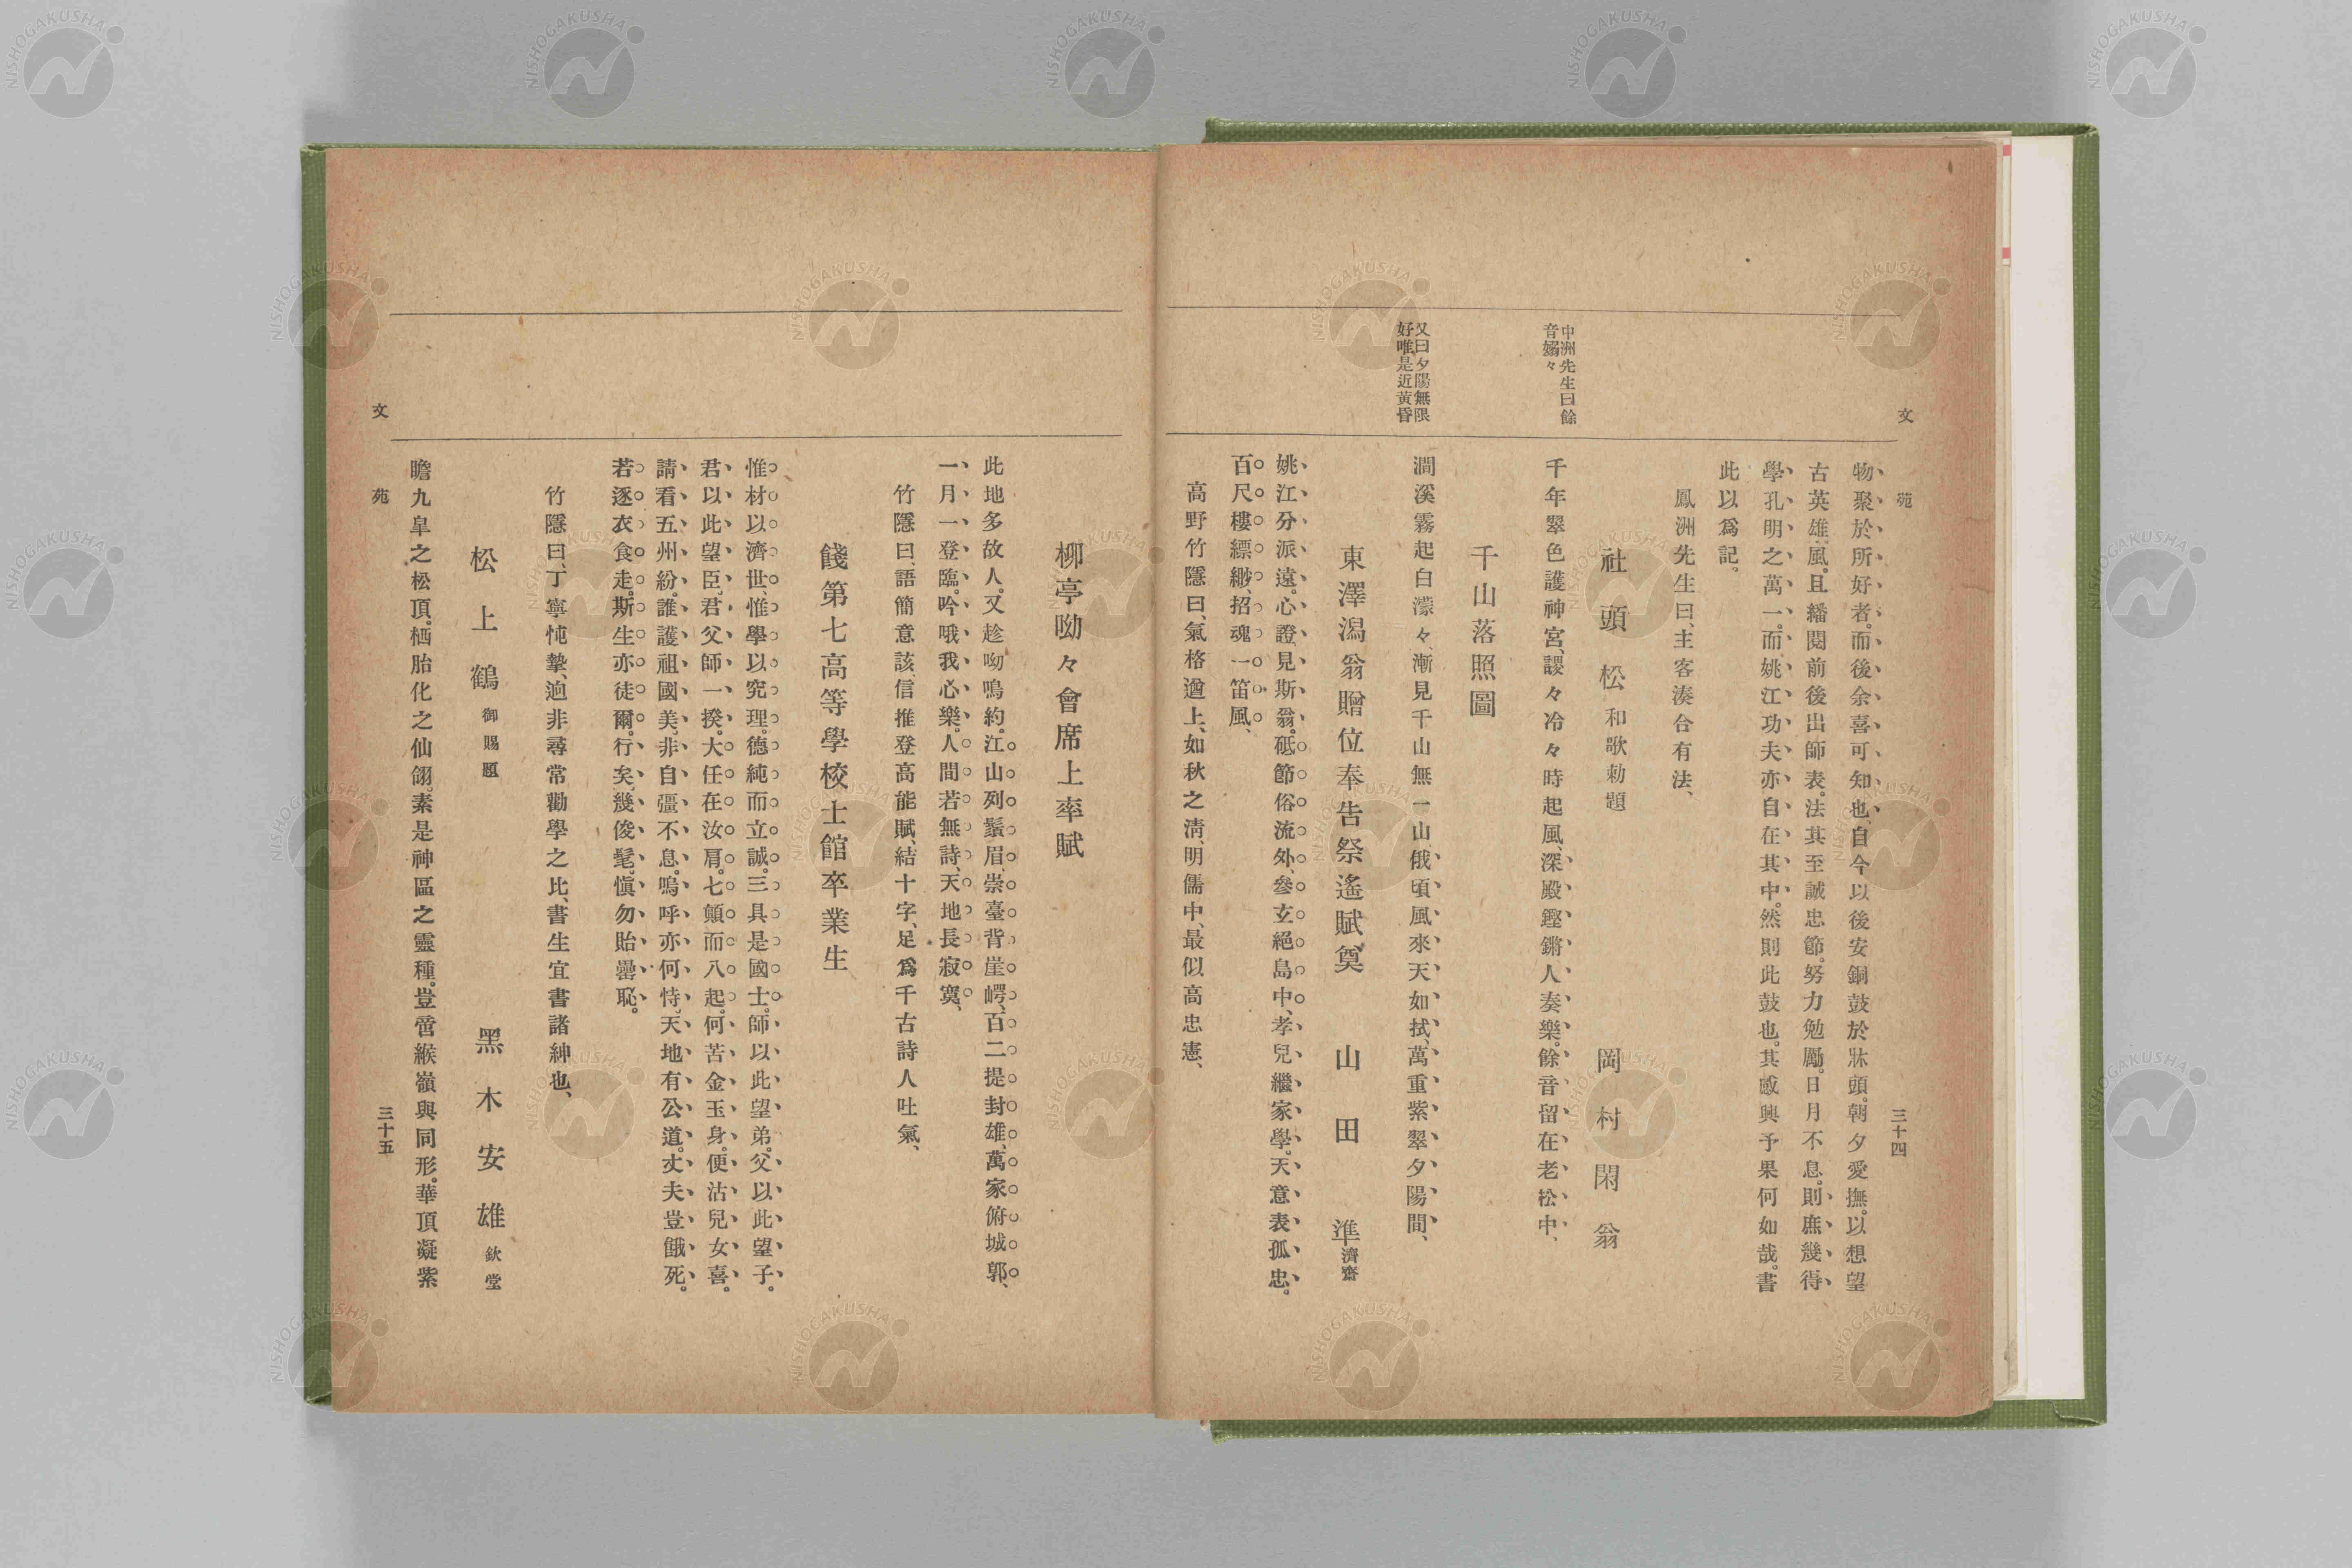 文苑
三十四
物聚於所好者。而後余喜可知也、自今以後安銅鼓於牀頭。朝夕愛撫。以想望
古英雄風。且繙閱前後出師表。法其至誠忠節。努力勉勵。日月不息。則庶幾得
學孔明之萬一。而姚江功夫亦自在其中。然則此鼓也。其感興予果何如哉。書
此以爲記。
鳳洲先生曰、主客湊合有法、
社頭松 和歌勅題
岡村閑翁
中洲先生曰餘
音嫋々
千年翠色護神宮、謖々冷々時起風、深殿鏗鏘人奏樂。餘音留在老松中、
千山落照圖
又曰夕陽無限
好唯是近黃昏
澗溪霧起白濛々、漸見千山無一山、俄頃風來天如拭、萬重紫翠夕陽間、
東澤瀉翁贈位奉告祭遙賦奠
山田準 濟齋
姚江分派遠。心證見斯翁。砥節俗流外、參玄絕島中、孝兒繼家學。天意表孤忠。
百尺樓縹緲、招魂一笛風、
高野竹隱曰、氣格遒上、如秋之淸、明儒中、最似高忠憲、
柳亭呦々會席上率賦
此地多故人。又趁呦鳴約。江山列鬚眉、崇臺背崖崿、百二提封雄、萬家俯城郭、
一月一登臨。吟哦我心樂。人間若無詩、天地長寂寞、
竹隱曰、語簡意該、信推登高能賦、結十字、足爲千古詩人吐氣、
餞第七高等學校士館卒業生
惟材以濟世、惟學以究理。德純而立誠。三具是國士。師以此望弟。父以此望子。
君以此望臣、君父師一揆。大任在汝肩。七顚而八起。何苦金玉身。便沾兒女喜。
請看五州紛。誰護祖國美、非自彊不息。嗚呼亦何恃、天地有公道。丈夫豈餓死。
若逐衣食走。斯生亦徒爾。行矣幾俊髦、愼勿貽罍恥。
竹隱曰、丁寧忳摯、逈非尋常勸學之比、書生宜書諸紳也、
松上鶴 御賜題
黑木安雄 欽堂
瞻九皐之松頂。栖胎化之仙翎。素是神區之靈種。豈啻緱嶺與同形。華頂凝紫
文苑
三十五
NISHOGAKUSHA